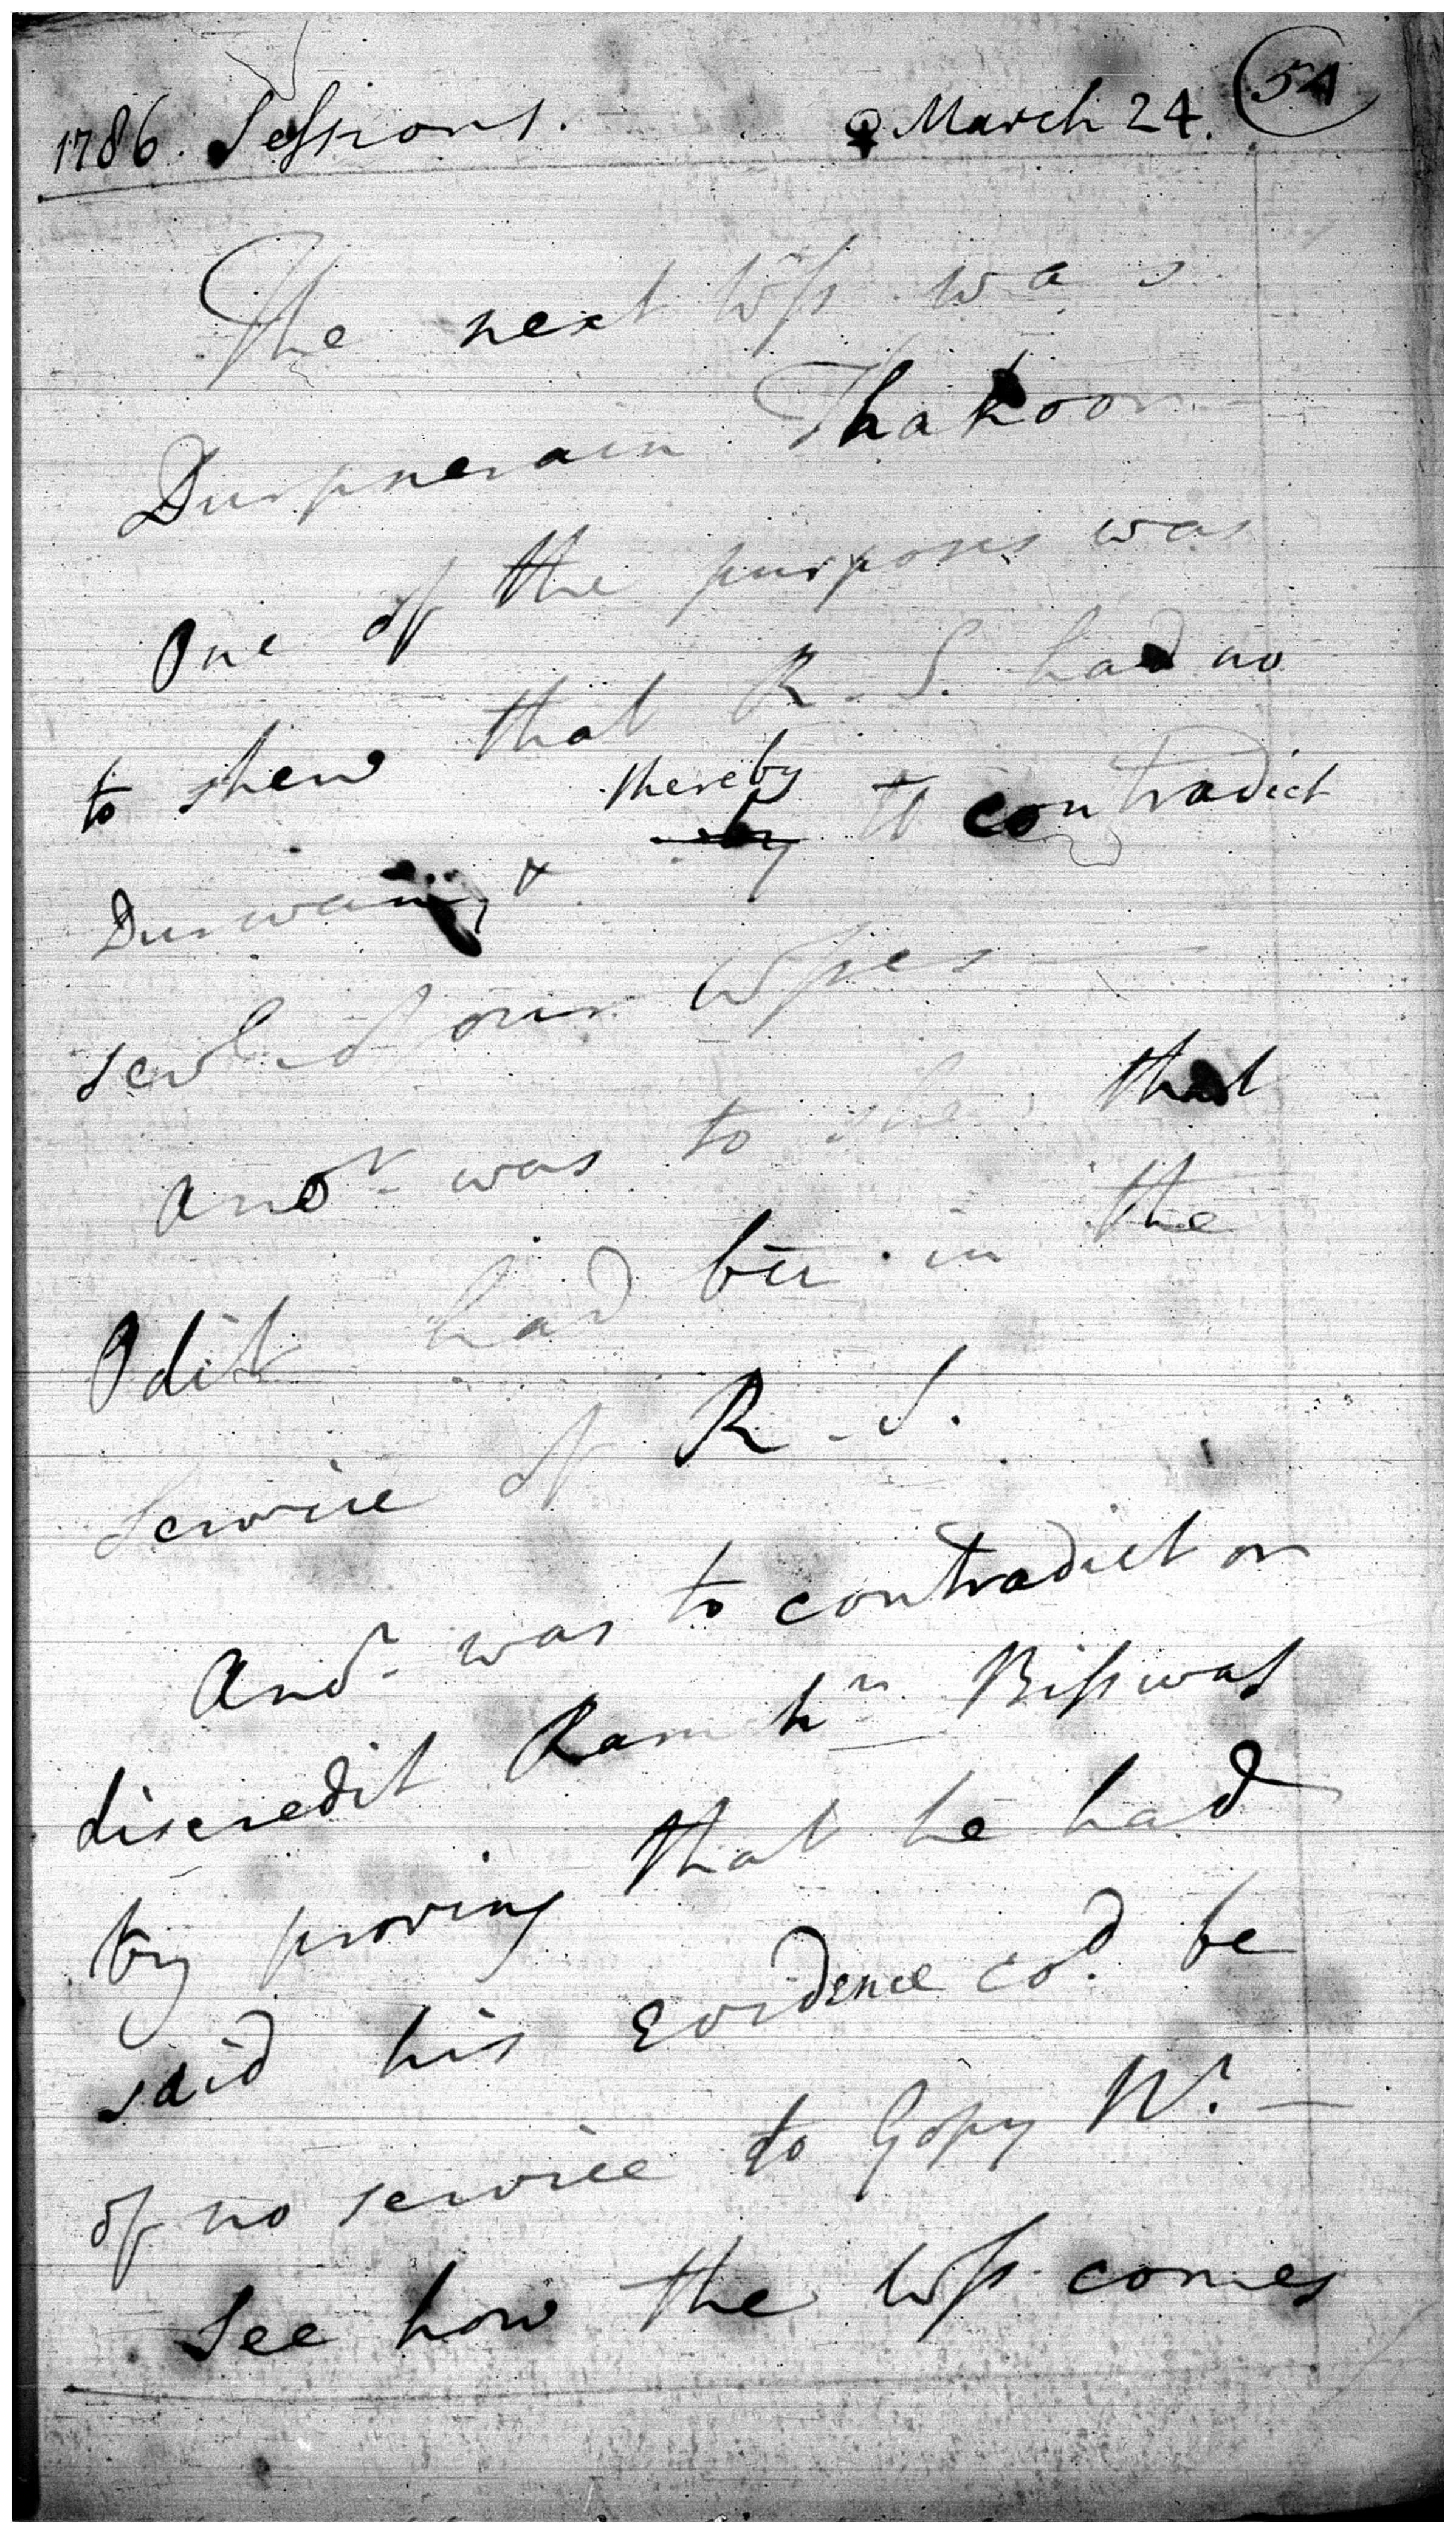 1786. Sessions. ♀ March 24. 54
The next Wss was
Durpnerain Thakoor —
One of the purposes was
to shew that R. S. had no
thereby
Durwan, & by to contradict
sevl of our Wsses —
Anor. was to shew that
Odit had been in the
Service of R. S.
Anor. was to contradict or
discredit Ramchn. Bisswas
by proving that he had
said his Evidence cod. be
of no service to Gopy N. —
See how the Wss comes